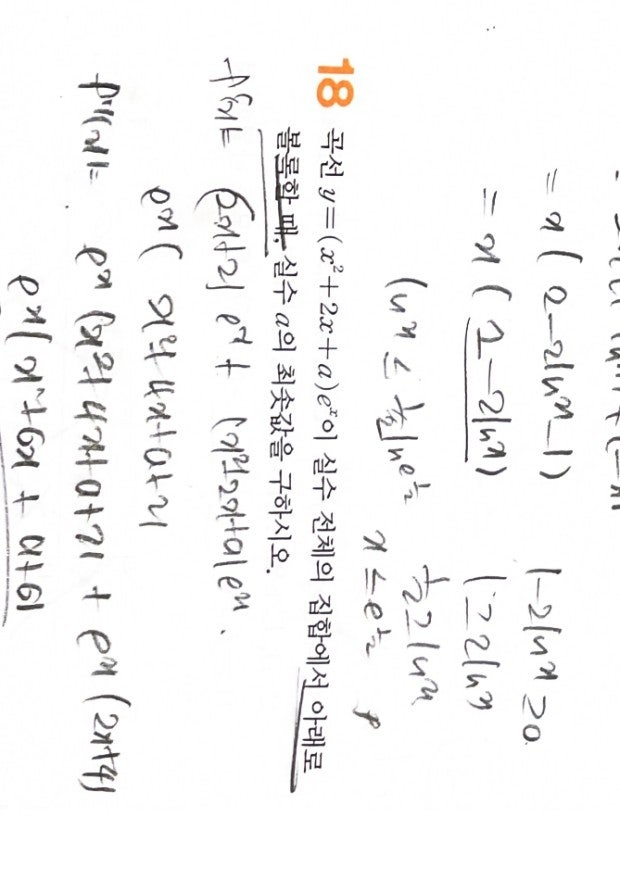 = x(2-2lnx-1)
1-2lnx ≥0.
= x(1-2lnx)
1≥2lnx
1/2≥lnx
lnx ≤ 1/2 lne^1/2
x ≤ e^1/2
18 곡선 y=(x²+2x+a)eˣ이 실수 전체의 집합에서 아래로
볼록할 때, 실수 a의 최솟값을 구하시오.
f'(x)= (2x+2)eˣ + (x²+2x+a)eˣ.
eˣ(x²+4x+a+2)
f''(x)= eˣ(x²+4x+a+2) + eˣ(2x+4)
eˣ(x²+6x+a+6)